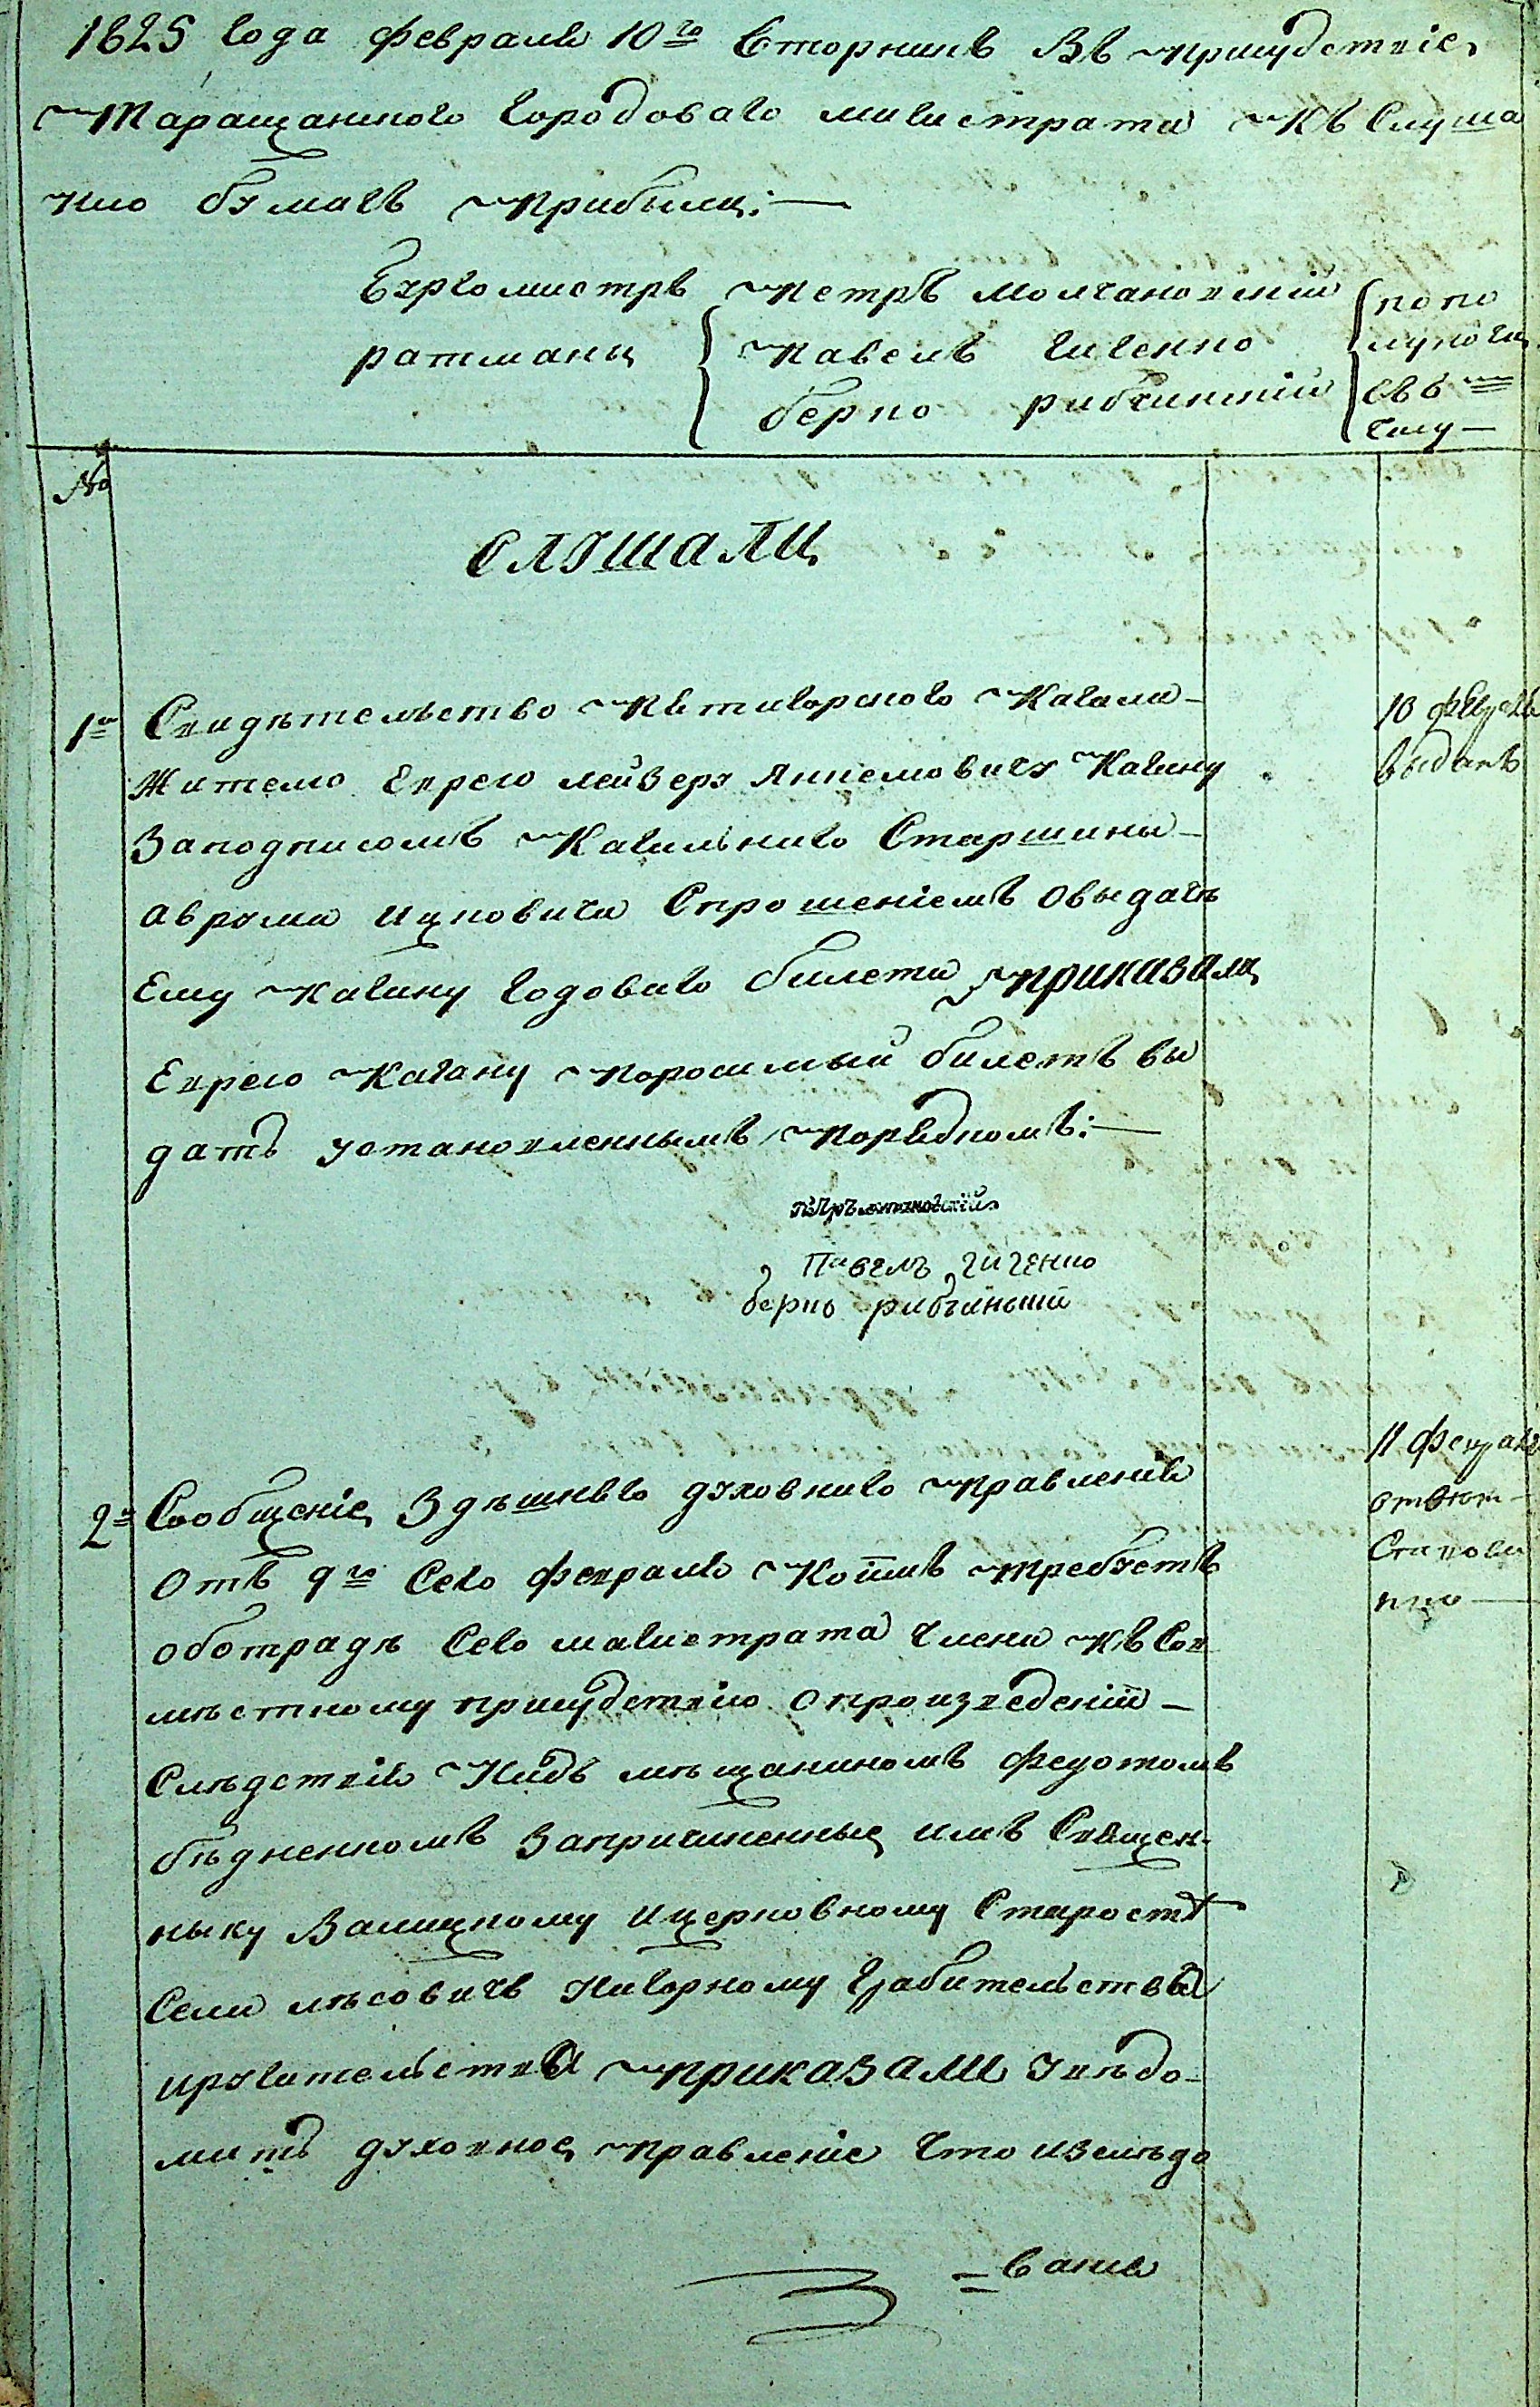 1825 года февраля 10го Вторникъ Въ присудствіе
Таращанского городоваго магистрата Къ Слуша
нію бумагъ прибыли:
Бургомистръ Петръ Молчановскій
ратманы Павелъ Гиченко
берко рибчинскій
по по
лучоги
съ 6
часу
№
СЛУШАЛИ
1е Свидѣтельство Кагала
Жителю Еврею лейзеру Анчемовичу Кагану
Заподписомъ Кагальнаго Старшины
аврума ицковича Спрошеніемъ овыдачѣ
Ему Кагану годоваго билета, приказали
Еврею Кагану поросимый билетъ вы
датъ установленнымъ порядкомъ:
10 февраля
выданъ
Петръ Молчановскій
Павелъ Гиченко
берко рибчинскій
2е Сообщеніе Здѣшняго духовнаго правленія
Отъ 9го Сего февраля Коимъ требуетъ
оботрадѣ Сего магистрата Члена Къ Сов
мѣстному присудствію опроизведеніи
Слѣдствія Надъ мѣщаниномъ федотомъ
бѣдненкомъ Запричиненные имъ Священ
ныку Залицкому ицерковному Старостѣ
Села лѣсовичъ Нагорному грабительства
иругательства приказали Увѣдо
митъ духовное правленіе Что изслѣдо
ванія
11 февраля